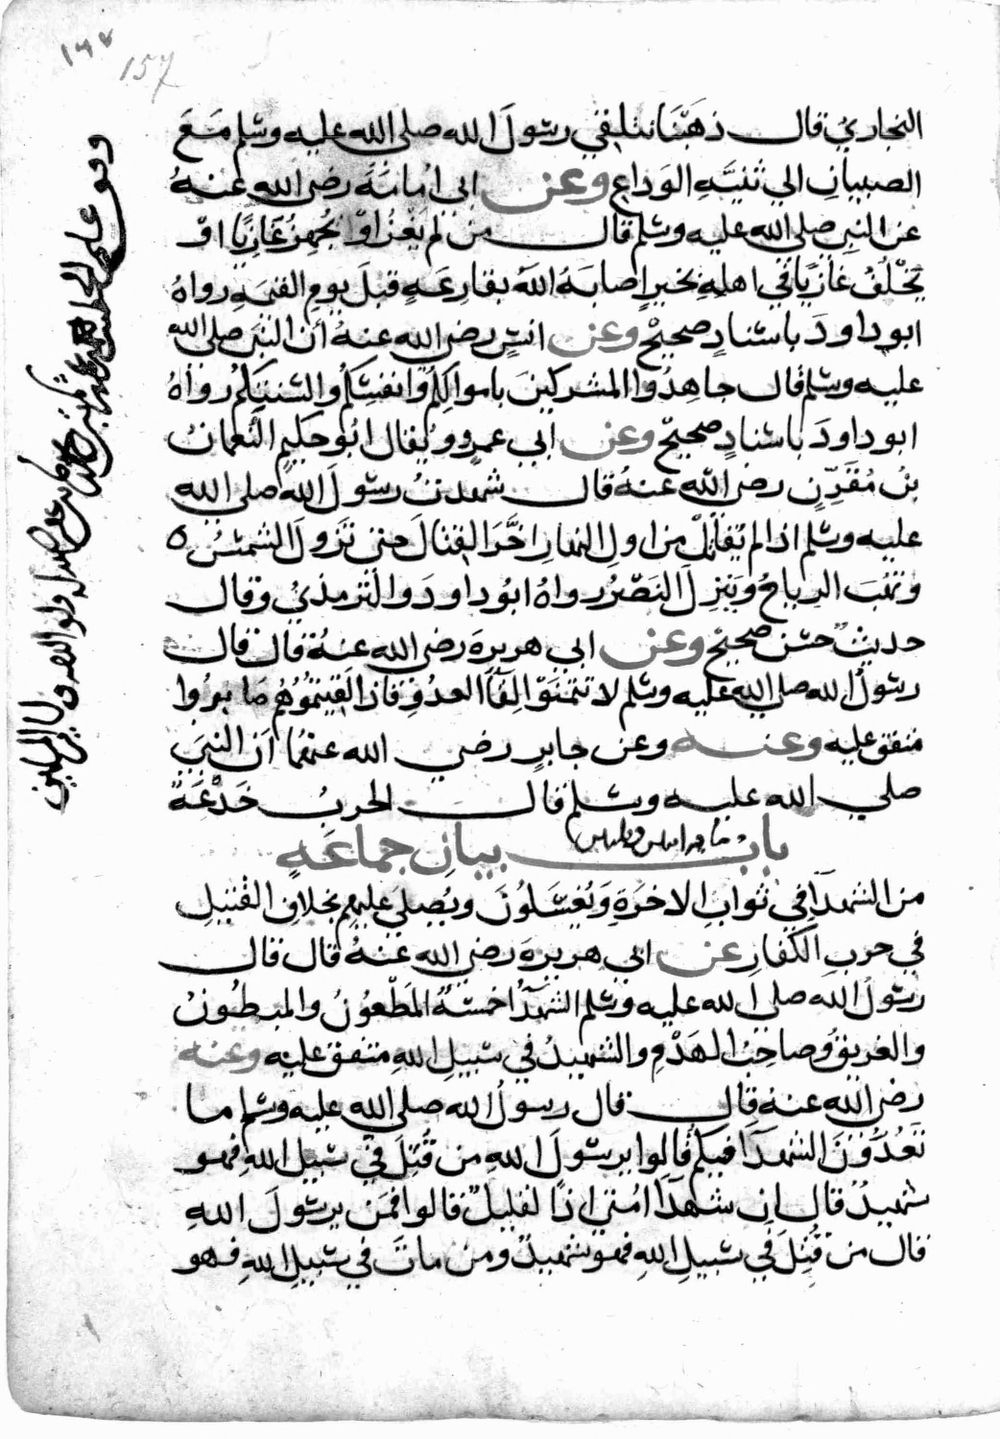 ١٥٧
157
البخاري قال ذهبنا نتلقي رسول الله صلى الله عليه وسلم مَعَ
الصبيان الي ثنيّة الوداع وعن ابى امامَة رضى الله عنهُ
عن النبي صلى الله عليه وسلم قال من لم يغزُ اوْ يُجهِّز غازيًا اوْ
يخْلُفُ غازيًا في اهلهِ بخيرٍ اصابَهُ اللّهُ بقارعَةٍ قبلَ يوم القيمَةِ رواهُ
ابو داودَ باسنادٍ صحيحْ وعن انسٍ رضى الله عنهُ ان النبي صلى الله
عليه وسلم قال جاهِدُوا المشركينَ باموالكُم وانفسكُم والسنتِكُم رواهُ
ابو داودَ باسنادٍ صحيحْ وعن ابي عمرٍو ويُقال ابُو حكيم النُعمانُ
بنُ مُقَرِّنٍ رضى الله عنهُ قال شهدتُ رسولَ الله صلى الله
عليه وسلم اذا لم يُقاتِلْ من اولِ النهارِ اخَّرَ القتالَ حتى تَزولَ الشمسُ
وتهُبَ الرِياحُ ويَنزِلَ النَصْرُ رواهُ ابُو داودَ والترمذيُ وقال
حديث حسَن صحيحْ وعن ابي هريرةَ رضى الله عنهُ قال قال
رسولُ الله صلي الله عليه وسلم لا تتمَنّوا لِقآءَ العدُوِّ فاذا لقِيتمُوهُم فاصبرُوا
متفق عليه وعنه وعن جابرٍ رضي الله عنهُما اَنَ النبيَ
صلي الله عليه وسلم قال الحربُ خَدْعَة
باب بيان جماعَهٍ
من الشهدآءِ في ثوابِ الاخرَةِ وَيُغسَّلُونَ ويُصلَّي عليهِم بخلافِ القتيلِ
في حربِ الكفارِ عن ابى هريرةَ رضى الله عنهُ قال قال
رسولُ الله صلى الله عليه وسلم الشهدآءُ خمسَةٌ المَطْعُونُ والمبطُونُ
والغريقُ وصاحِبُ الهَدْمِ والشهيدُ في سبيلِ اللهِ متفق عليْه وعنه
رضى الله عنهُ قال قال رسولُ الله صلى الله عليه وسلم ما
تعُدُّونَ الشهدَآءَ فيكم قالوا يرسُولَ اللهِ من قُتِلَ في سَبيلِ اللهِ فهو
شهيدٌ قال ان شهدَآءَ امتي اذًا لقليلٌ قالوا فمَن يرسُولَ اللهِ
قال من قُتِلَ في سَبيلِ اللهِ فهو شهيدٌ ومن ماتَ في سَبيلِ اللهِ فهو